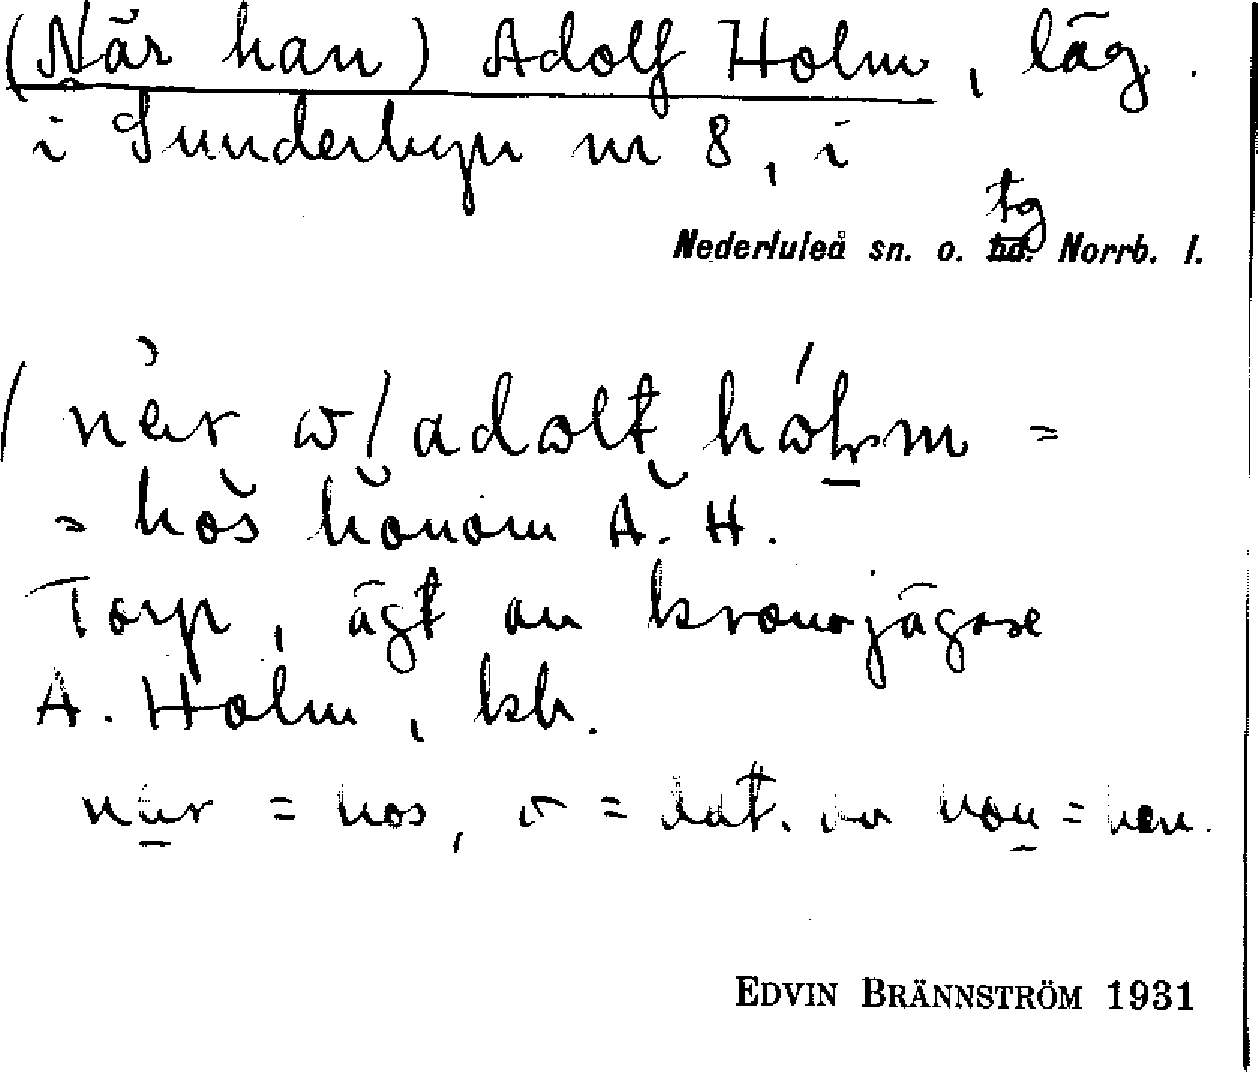 (När han) Adolf Holm, läg.
i Sunderbyn nr 8, i
tg
Nederluleå sn. o. hd. Norrb. l.
adolf
= hos honom A. H.
Torp, ägt av kronojägare
A. Holm, kb.
när = hos, = dat. av hon = han.
EDVIN BRÄNNSTRÖM 1931